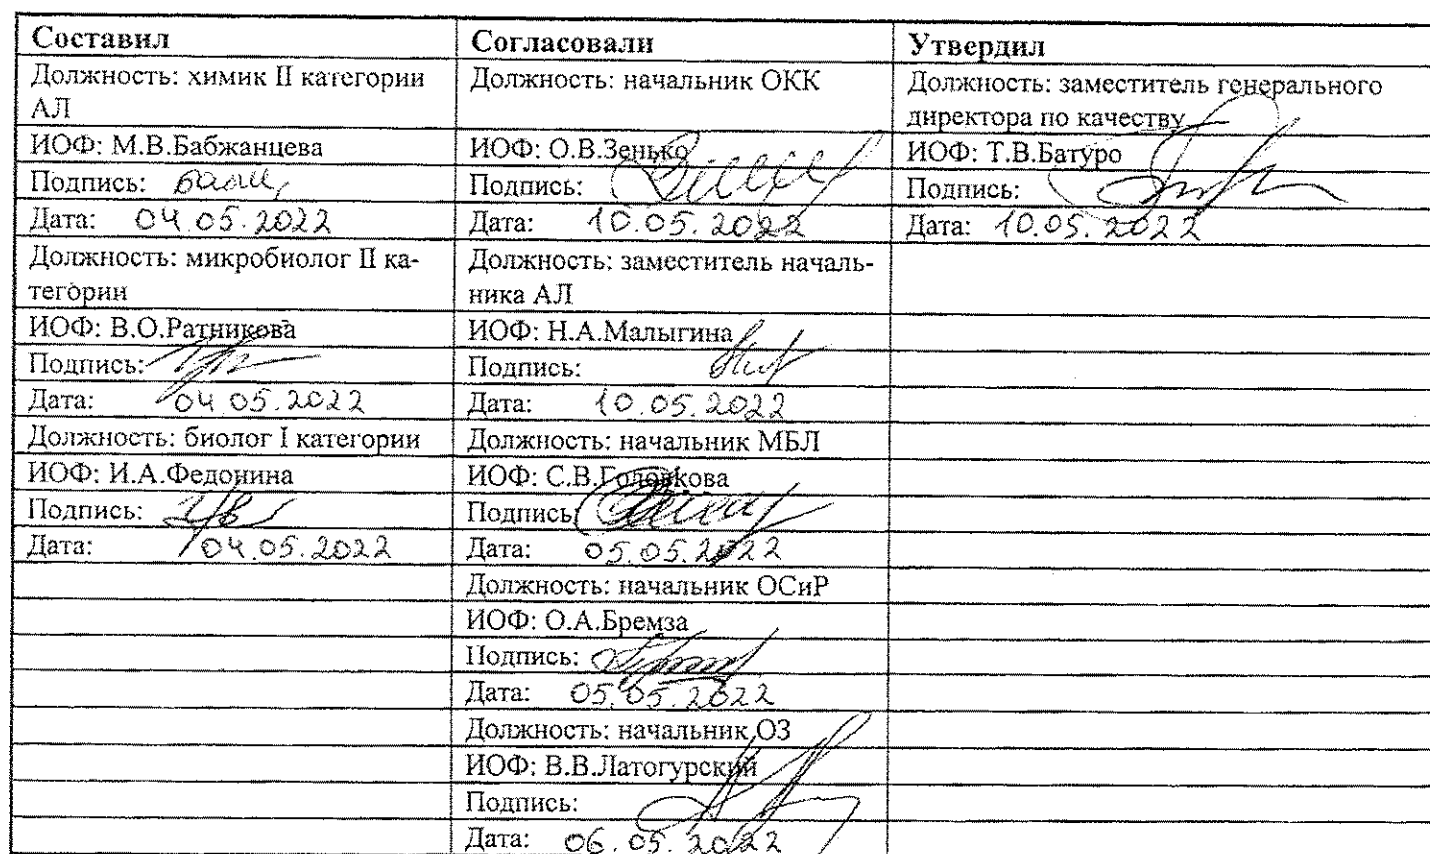 Составил Согласовали Утвердил
Должность: химик II категории Должность: начальник ОКК Должность: заместитель генерального
АЛ директора по качеству
ИОФ: М.В.Бабжанцева ИОФ: О.В.Зенько ИОФ: Т.В.Батуро
Подпись: Подпись: Подпись:
Дата: 04.05.2022 Дата: 10.05.2022 Дата: 10.05.2022
Должность: микробиолог II ка- Должность: заместитель началь-
тегории ника АЛ
ИОФ: В.О.Ратникова ИОФ: Н.А.Малыгина
Подпись: Подпись:
Дата: 04.05.2022 Дата: 10.05.2022
Должность: биолог I категории Должность: начальник МБЛ
ИОФ: И.А.Федонина ИОФ: С.В.Головкова
Подпись: Подпись:
Дата: 04.05.2022 Дата: 05.05.2022
Должность: начальник ОСиР
ИОФ: О.А.Бремза
Подпись:
Дата: 05.05.2022
Должность: начальник ОЗ
ИОФ: В.В.Латогурский
Подпись:
Дата: 06.05.2022